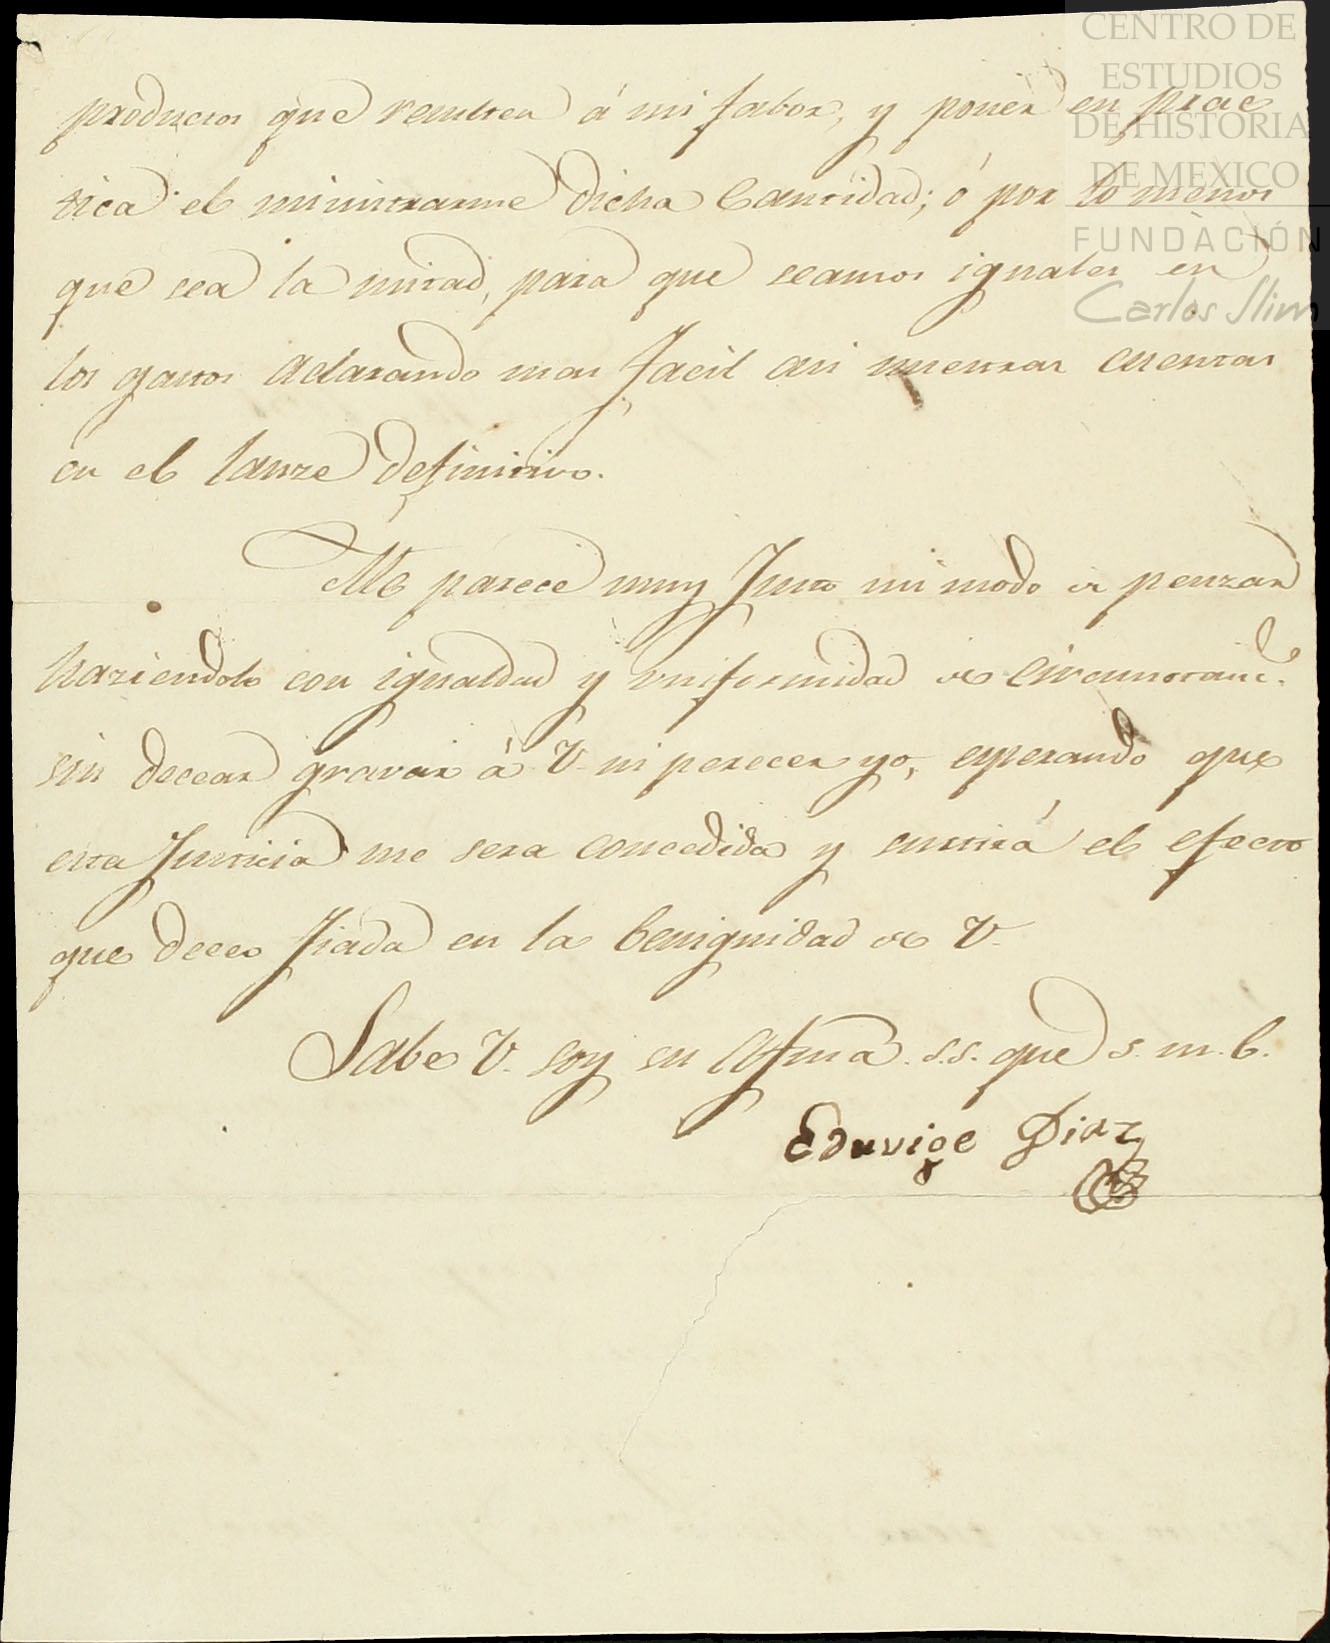 CENTRO DE
ESTUDIOS
DE HISTORIA
DE MEXICO
FUNDACIÓN
Carlos Slim
productos que resulten á mi fabor, y poner en prac
tica el ministrarme dicha Cantidad; ó por lo menos
que sea la mitad, para que seamos iguales en
los gastos aclarando mas facil asi nuestras cuentas
en el lanze definitivo.
Me parece muy Justo mi modo de penzar
haziendolo con igualdad y uniformidad de circunstanc.s
sin decear gravar á V. ni perecer yo, esperando que
esta Justicia me sera concedida y surtirá el efecto
que deceo fiada en la benignidad de V.
Sabe V. soy su Afma. s.s. que s. m. b.
Eduvige Diaz